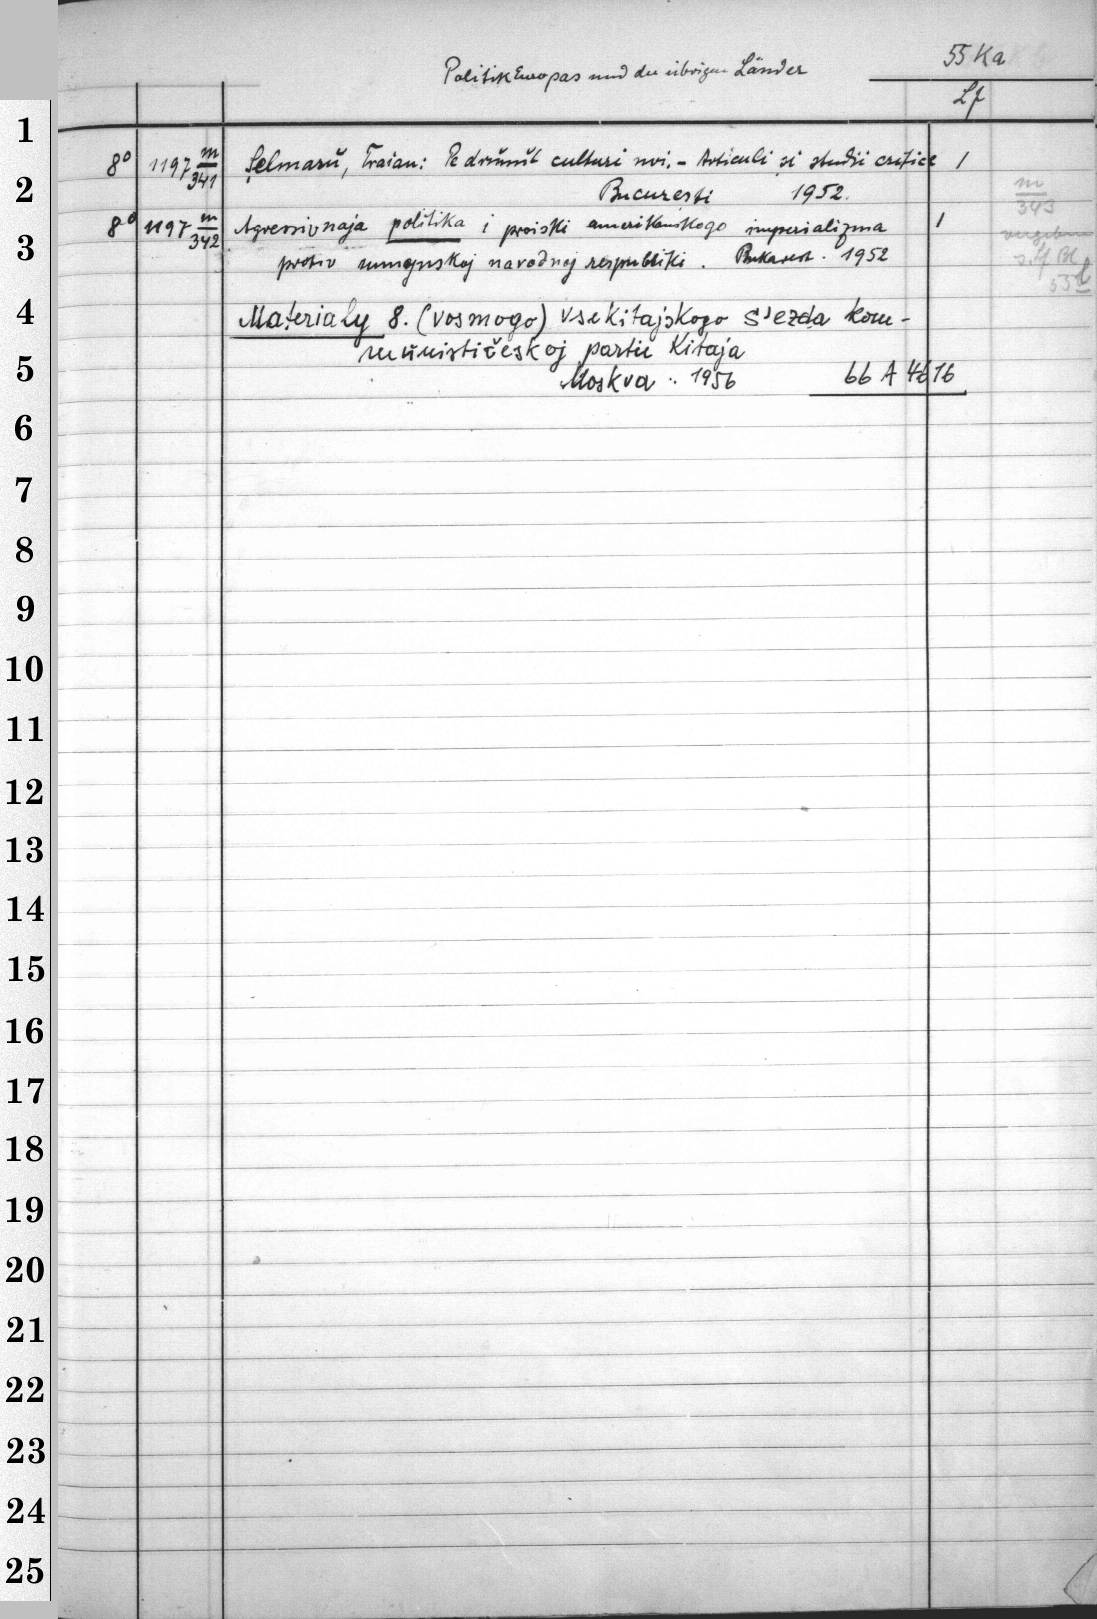 55 Ka
Politik Europas und der übrigen Länder
Lf
1
8° 1197 m/341 Şelmarŭ, Traian: Pe drŭmŭl culturi noi. - Articuli si studii critice 1
2
Bucuresti 1952.
m/343
8° 1197 m/342 Agressivnaja politika i proiski amerikanskogo imperializma 1
vergeben
3
protiv rumynskoj narodnoj respubliki. Bukarest. 1952
4
Materialy 8. (vosmogo) vsekitajskogo s'ezda kom-
mŭnističeskoj partii Kitaja
5
Moskva .. 1956 66 A 4616
6
7
8
9
10
11
12
13
14
15
16
17
18
19
20
21
22
23
24
25